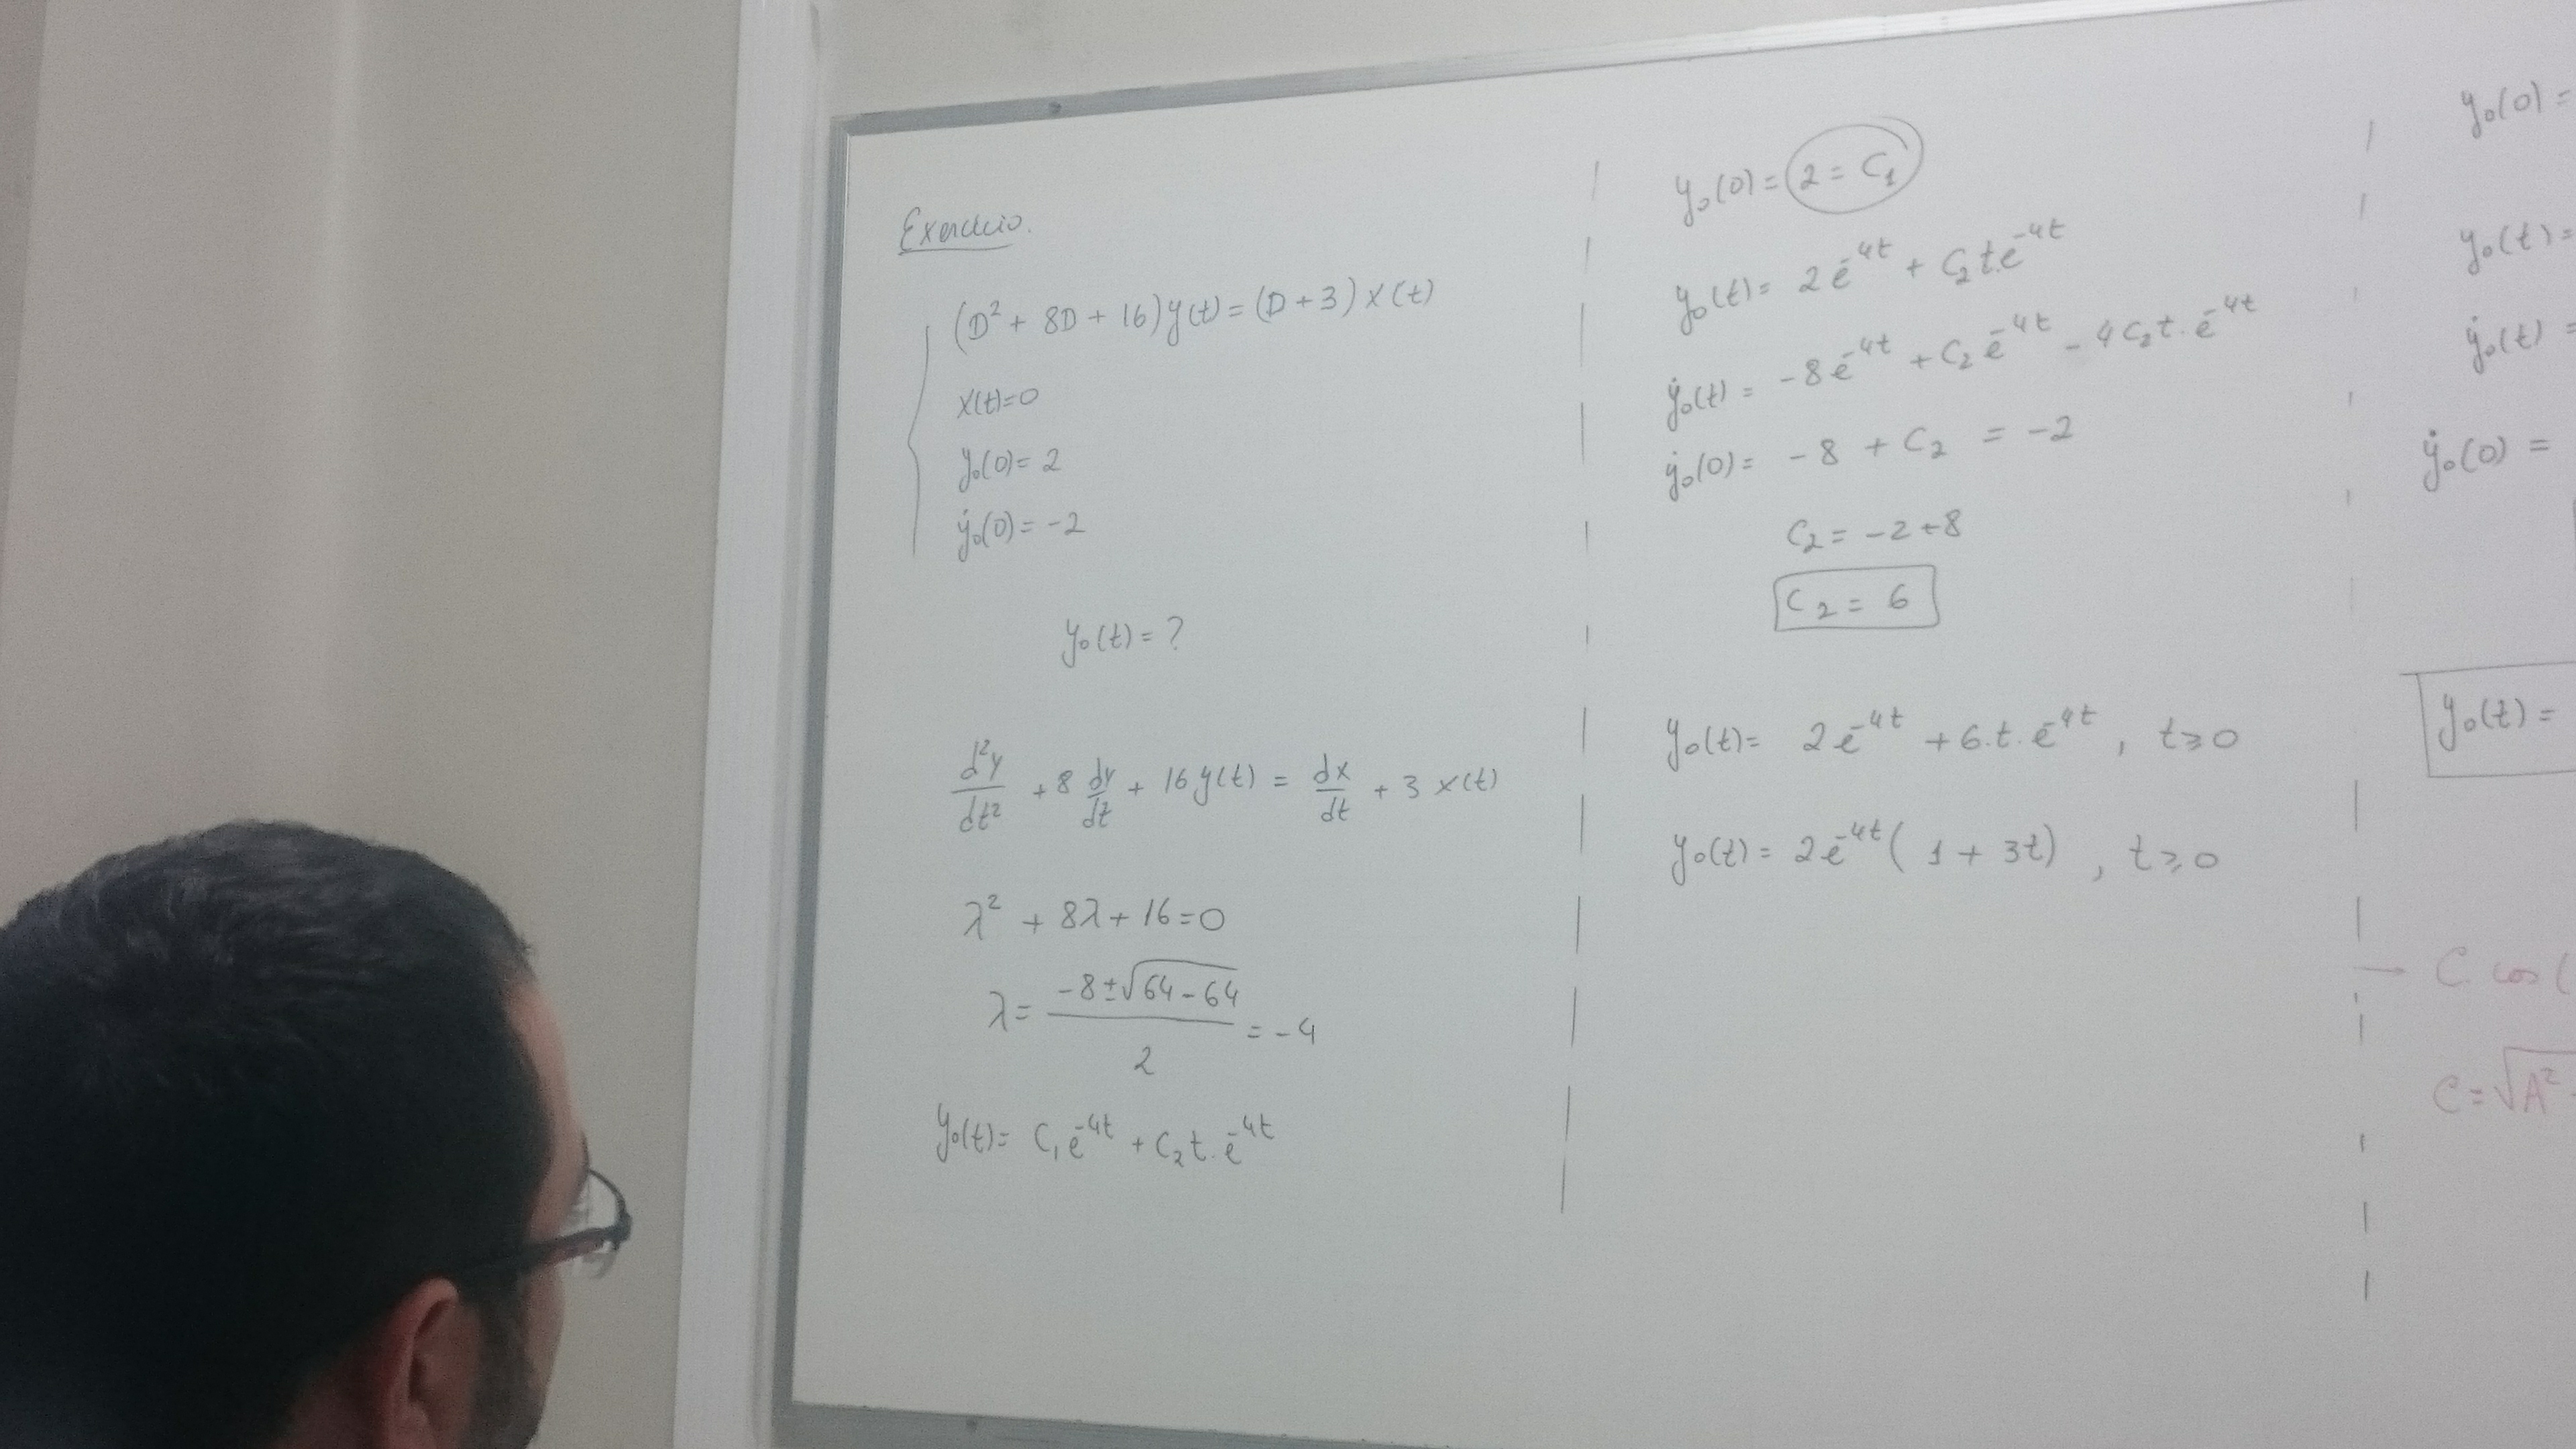 Exercício.
(D² + 8D + 16) y(t) = (D + 3) x(t)
x(t)=0
y₀(0) = 2
ẏ₀(0) = -2
y₀(t) = ?
d²y/dt² + 8 dy/dt + 16 y(t) = dx/dt + 3 x(t)
λ² + 8λ + 16 = 0
λ = (-8 ± √(64 - 64))/2 = -4
y₀(t) = C₁ e^(-4t) + C₂ t . e^(-4t)
y₀(0) = 2 = C₁
y₀(t) = 2 e^(-4t) + C₂ t . e^(-4t)
ẏ₀(t) = -8 e^(-4t) + C₂ e^(-4t) - 4 C₂ t . e^(-4t)
ẏ₀(0) = -8 + C₂ = -2
C₂ = -2 + 8
C₂ = 6
y₀(t) = 2 e^(-4t) + 6 . t . e^(-4t) , t ≥ 0
y₀(t) = 2 e^(-4t) ( 1 + 3t ) , t ≥ 0
y₀(0) =
y₀(t) =
ẏ₀(t) =
ẏ₀(0) =
y₀(t) =
→ C. cos (
C = √A²